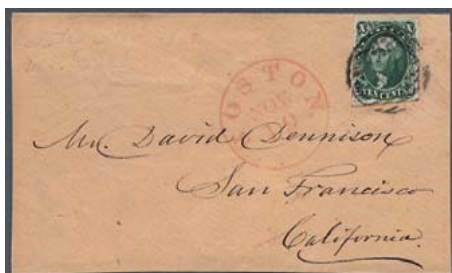 X X
TEN CENTS
BOSTON
NOV
Mr. David Dennison
San Francisco
California.